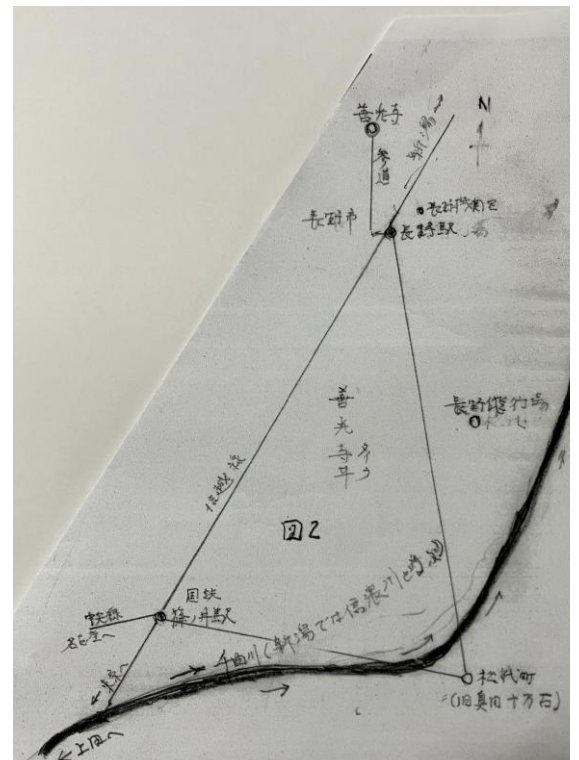 N
善光寺
参道
新潟→
長野機関区
長野市
長野駅
長野飛行場
善光寺平
信越線
図2
国鉄
篠ノ井駅
中央線
名古屋へ
東京へ
千曲川(新潟では信濃川と呼ぶ)
松代町
(旧真田十万石)
←上田へ